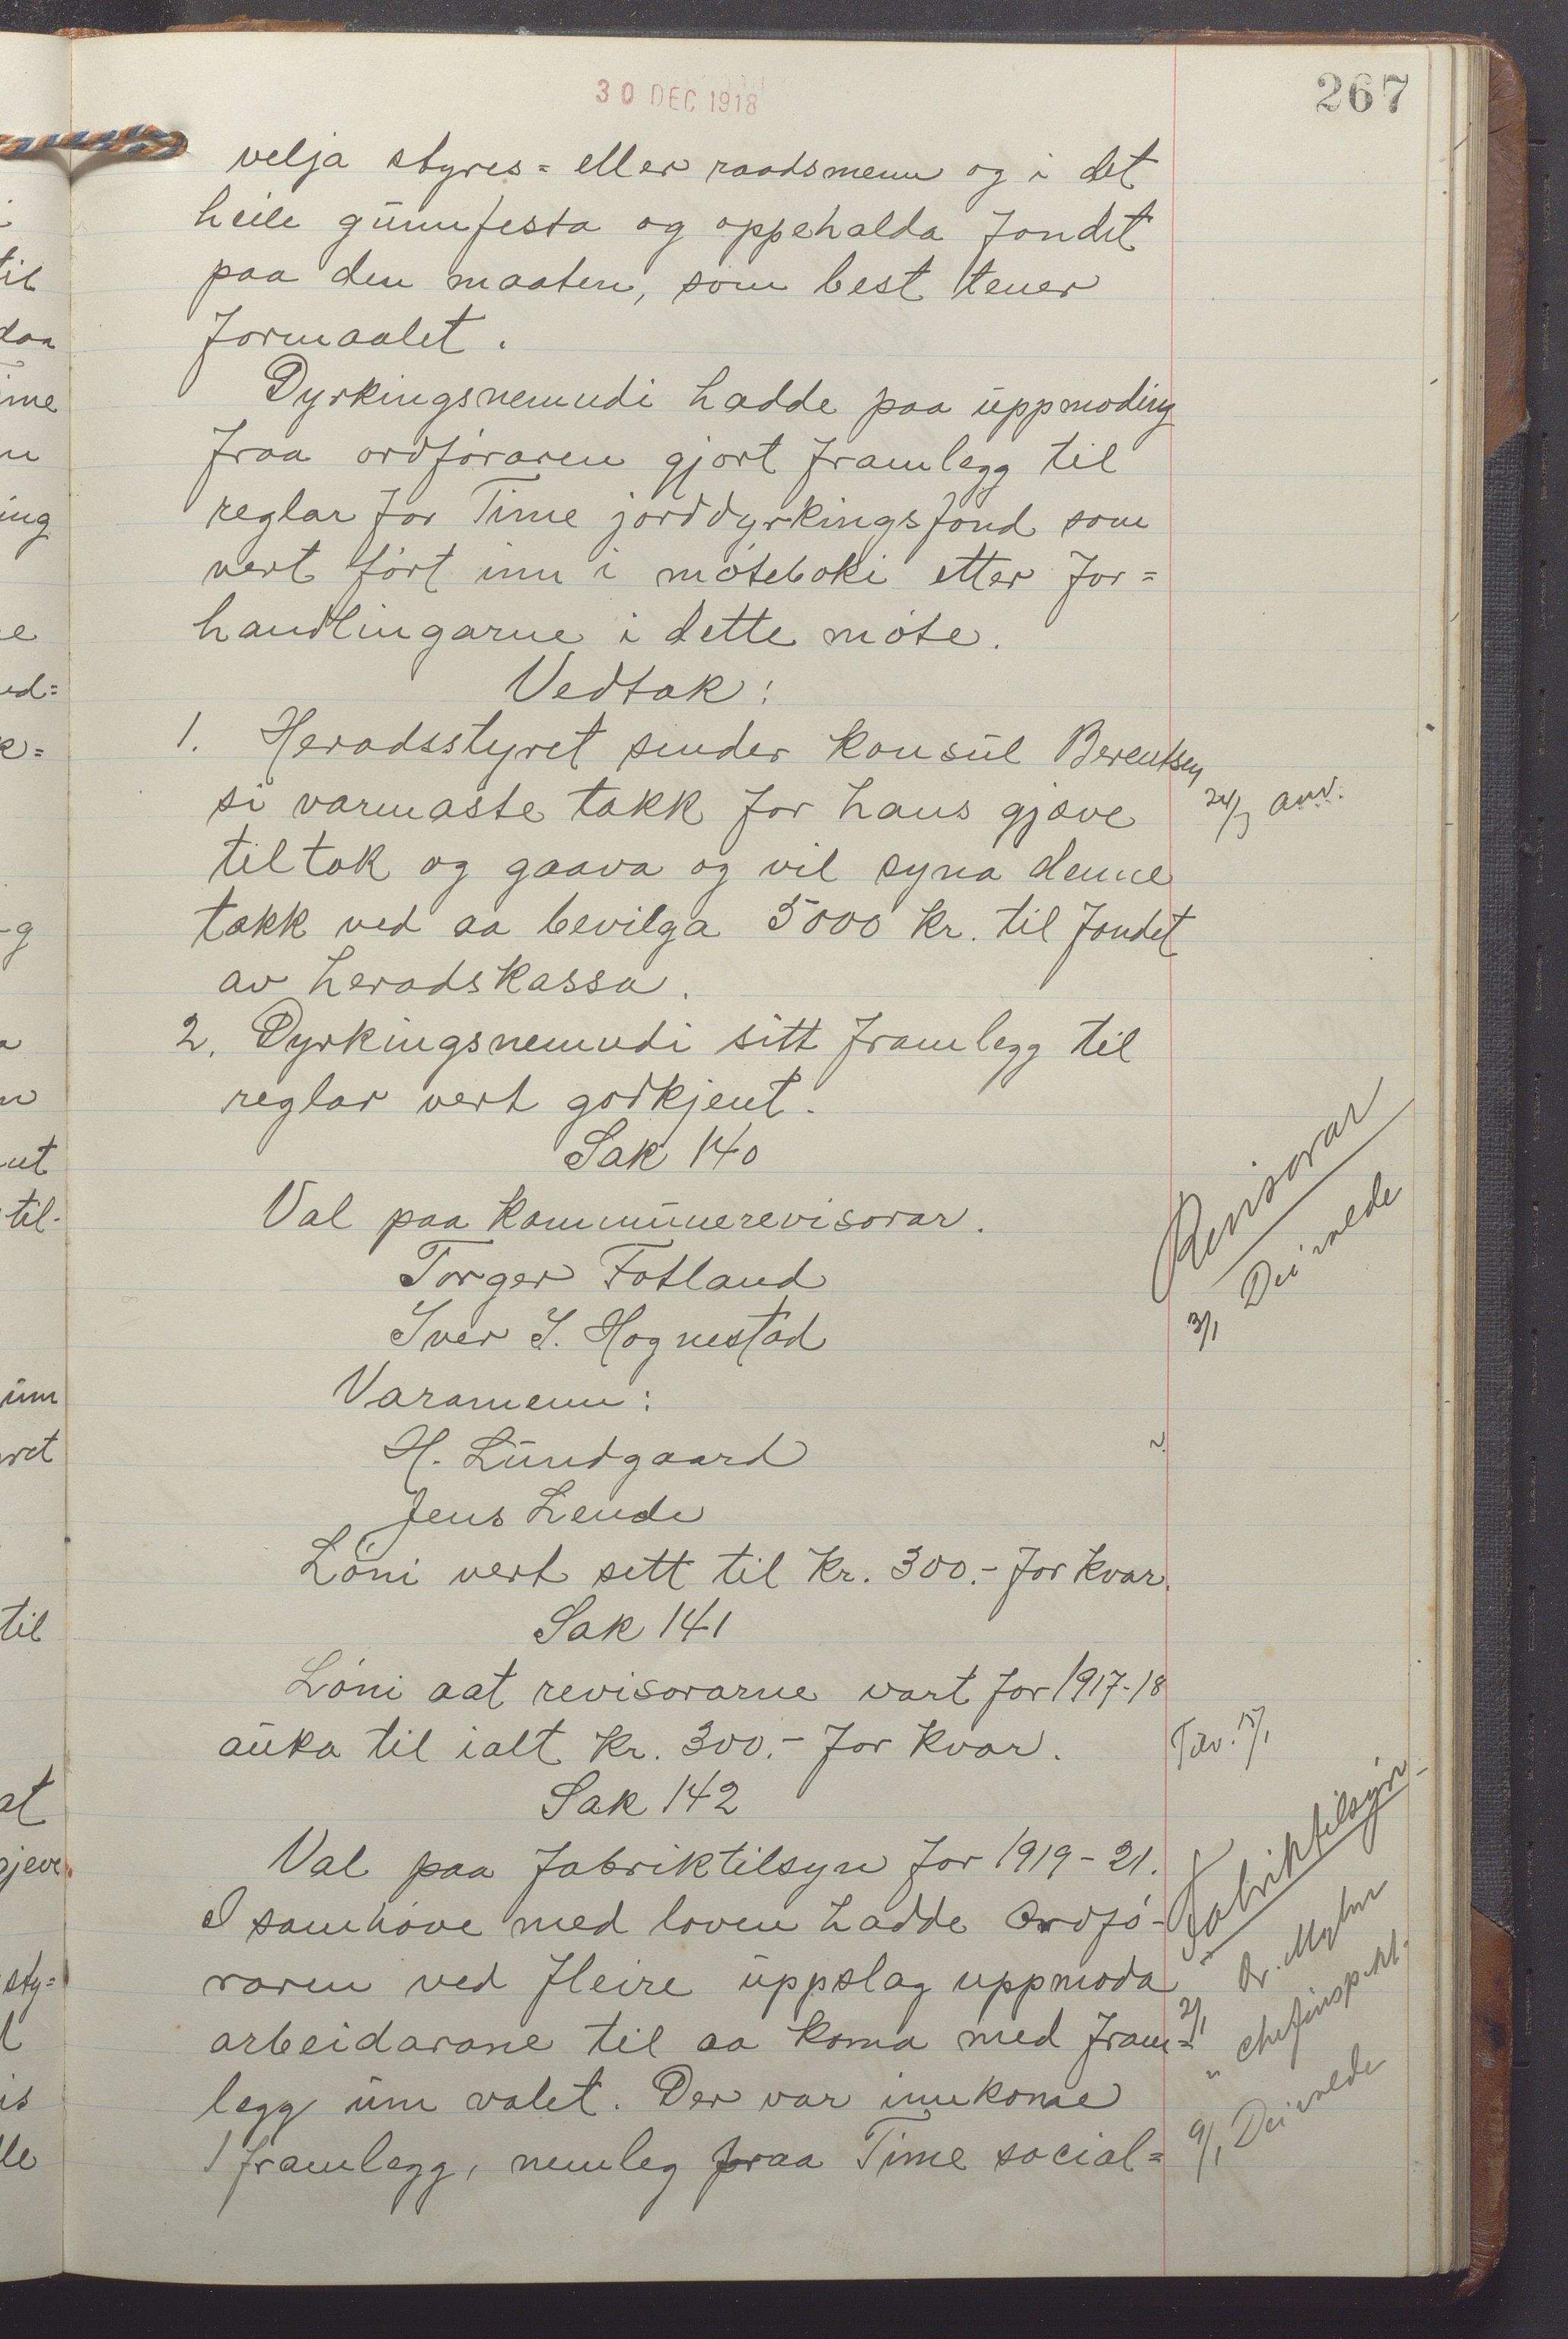 30 DEC 1918
267
velja styres= eller raadsmenn og i det
heile grunnfesta og oppehalda fondet
paa den maaten, som best tener
formaalet.
Dyrkingsnemndi hadde paa uppmoding
fraa ordføraren gjort framlegg til
reglar for Time jorddyrkingsfond som
vert ført inn i møteboki etter for=
handlingarne i dette møte.
Vedtak:
1. Heradsstyret sender konsul Berentsen
si varmaste takk for hans gjæve
tiltak og gaava og vil syna denne
takk ved aa bevilga 5000 kr. til fondet
av heradskassa.
24/3 anv.
2. Dyrkingsnemndi sitt framlegg til
reglar vert godkjent.
Sak 140
Val paa kommunerevisorar.
Torger Fotland
Iver I. Hognestad
Varamenn:
H. Lundgaard
Jens Lende
Løni vert sett til kr. 300.- for kvar.
Revisorar
3/1 Dei valde
Sak 141
Løni aat revisorarne vart for 1917-18
auka til ialt kr. 300.- for kvar.
Sak 142
Val paa fabriktilsyn for 1919-21.
I samhøve med loven hadde Ordfø-
raren ved fleire uppslag uppmoda
arbeidarane til aa koma med fram=
legg um valet. Der var innkome
1 framlegg, nemleg fraa Time social=
Fabriktilsyn
2/1 Dr.
" chefinspekt.
9/1 Dei valde